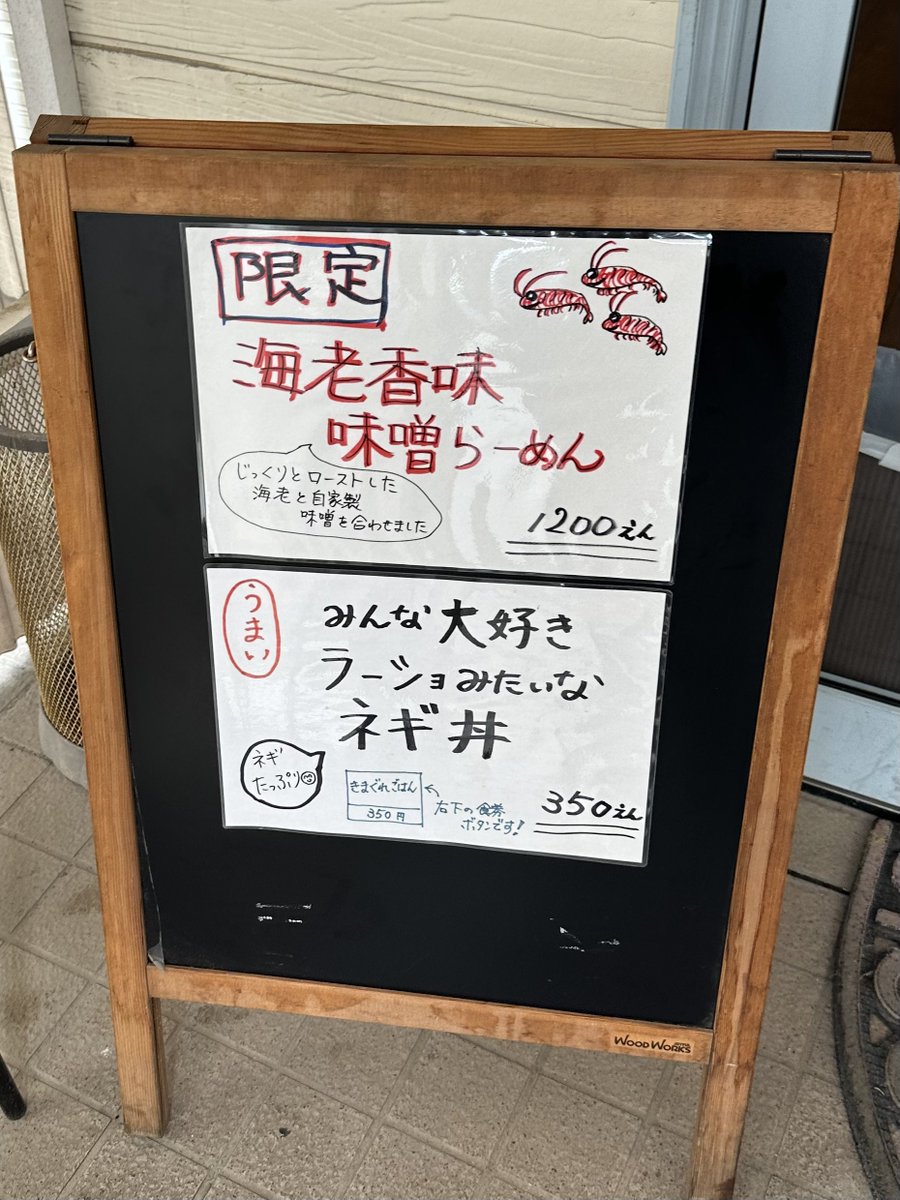 限定
海老香味
味噌らーめん
じっくりとローストした
海老と自家製
味噌を合わせました
1200えん
うまい
みんな大好き
ラーショみたいな
ネギ丼
ネギ
たっぷり
きまぐれごはん
350円
右下の食券
ボタンです!
350えん
WOOD WORKS